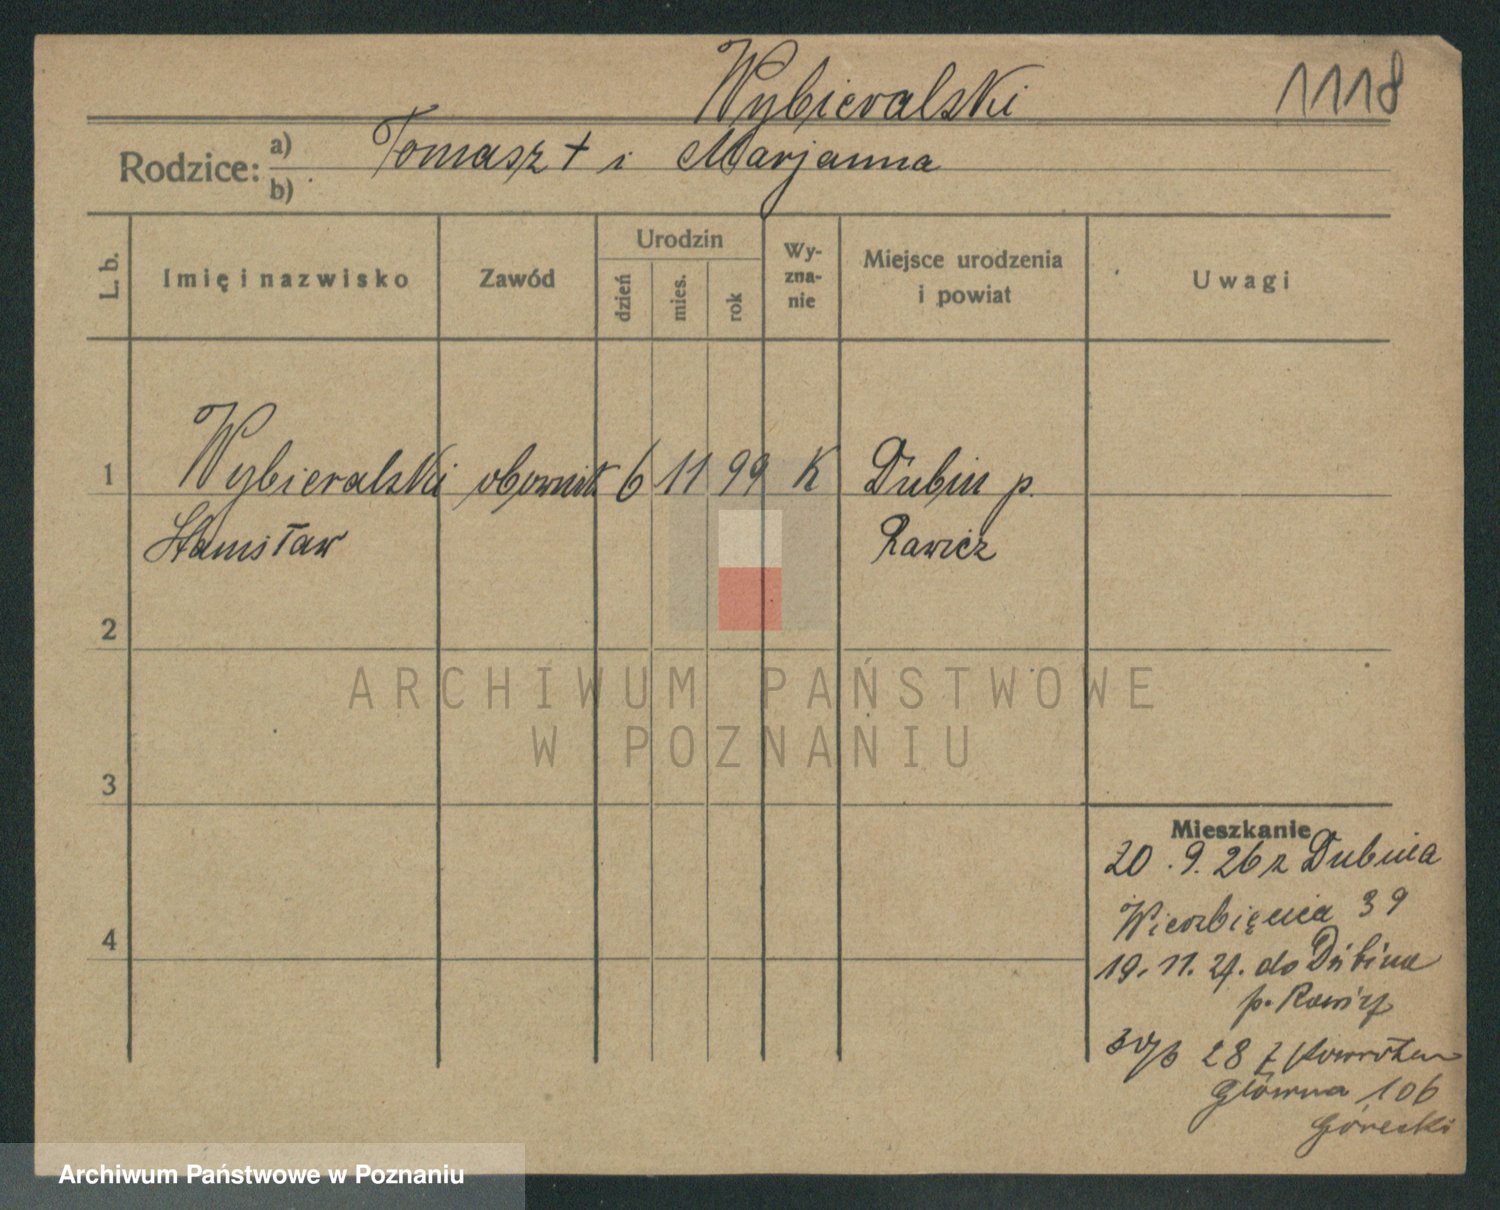 Wybieralski
1118
Rodzice: a) Tomasz + i Marjanna
b)
L. b.
Imię i nazwisko
Zawód
Urodzin
dzień
mies.
rok
Wy-
zna-
nie
Miejsce urodzenia
i powiat
Uwagi
1 Wybieralski obownik 6 11 99 K Dubin p.
Stanisław Rawicz
2
3
4
Mieszkanie
20.9.26 z Dubina
Wierzbięcia 39
19.11.27. do Dubina
p. Rawicz
28 z powrotem
Główna 106
Górecki
ARCHIWUM PAŃSTWOWE
W POZNANIU
Archiwum Państwowe w Poznaniu